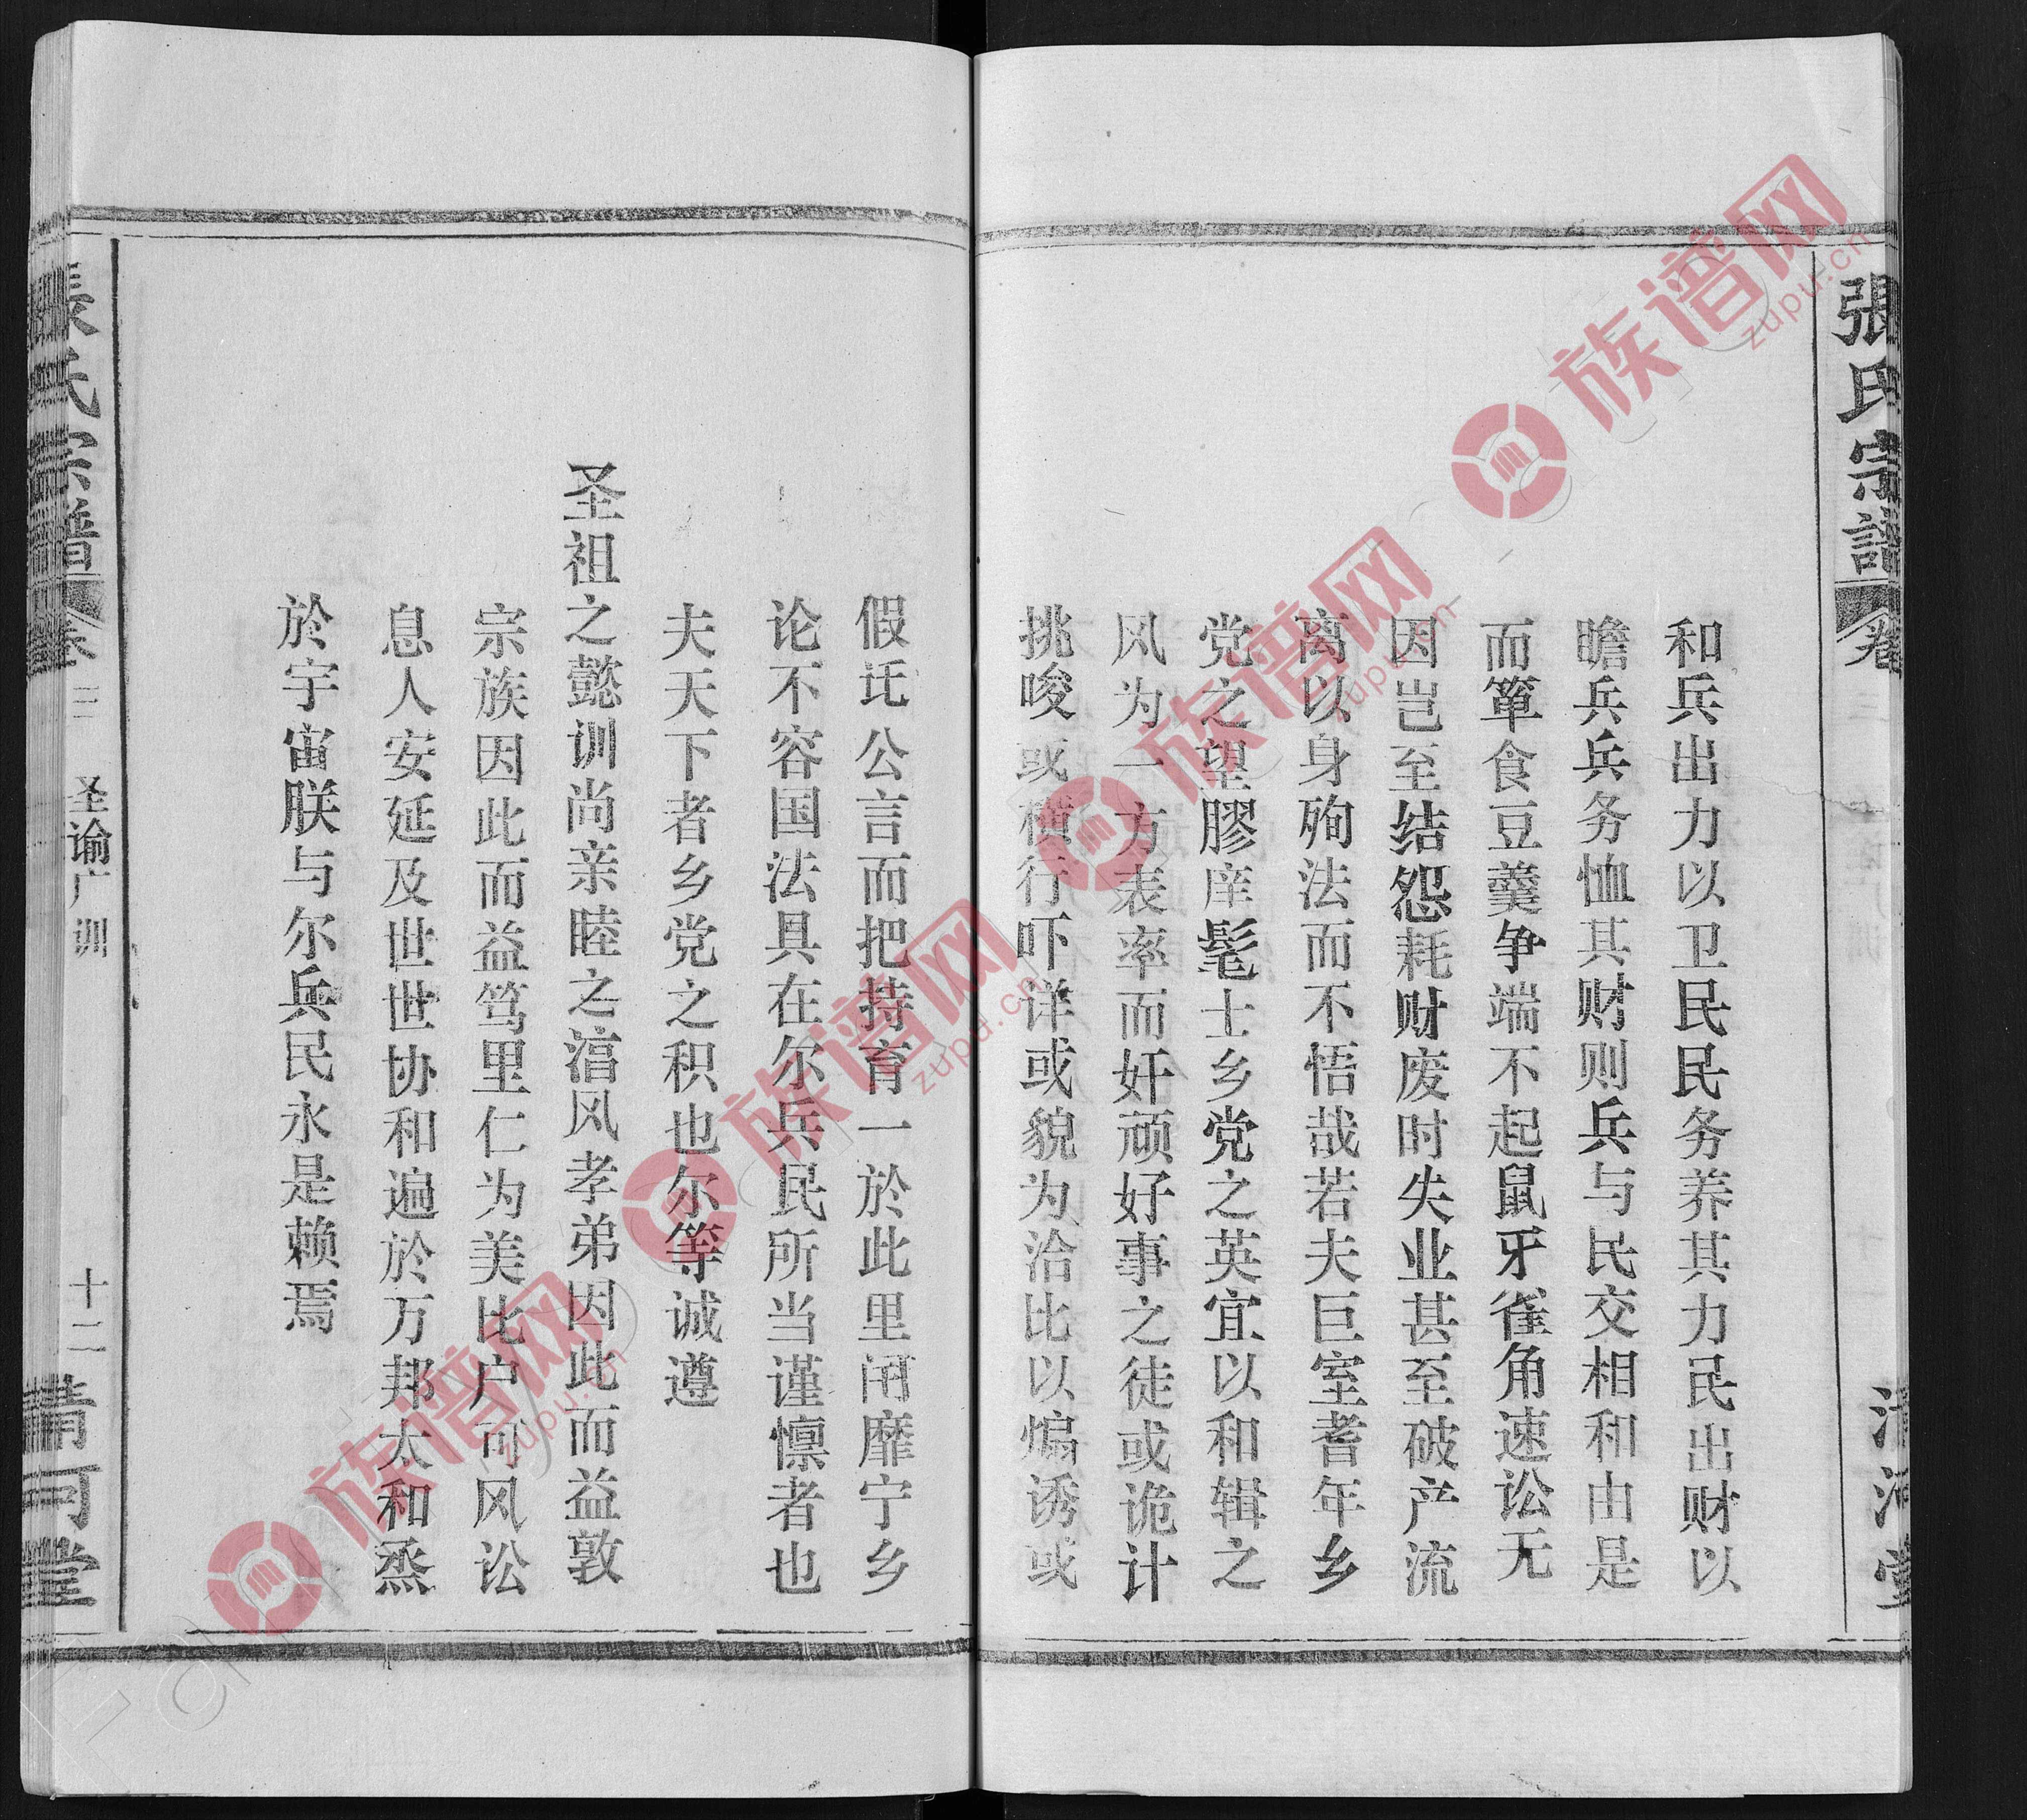 張氏宗譜
卷
清河堂
和兵出力以卫民民务养其力民出财以
瞻兵兵务恤其财则兵与民交相和由是
而箪食豆羹争端不起鼠牙雀角速讼无
因岂至结怨耗财废时失业甚至破产流
离以身殉法而不悟哉若夫巨室耆年乡
党之望膠庠髦士乡党之英宜以和辑之
风为一方表率而奸顽好事之徒或诡计
挑唆或横行吓详或貌为洽比以煽诱或
假讬公言而把持育一於此里闬靡宁乡
论不容国法具在尔兵民所当谨懔者也
夫天下者乡党之积也尔等诚遵
圣祖之懿训尚亲睦之湻风孝弟因此而益敦
宗族因此而益笃里仁为美比户可风讼
息人安延及世世协和遍於万邦太和烝
於宇宙朕与尔兵民永是赖焉
張氏宗譜
卷三
圣谕广训
十二
清河堂
族谱网
zupu.cn
族谱网
zupu.cn
族谱网
zupu.cn
族谱网
zupu.cn